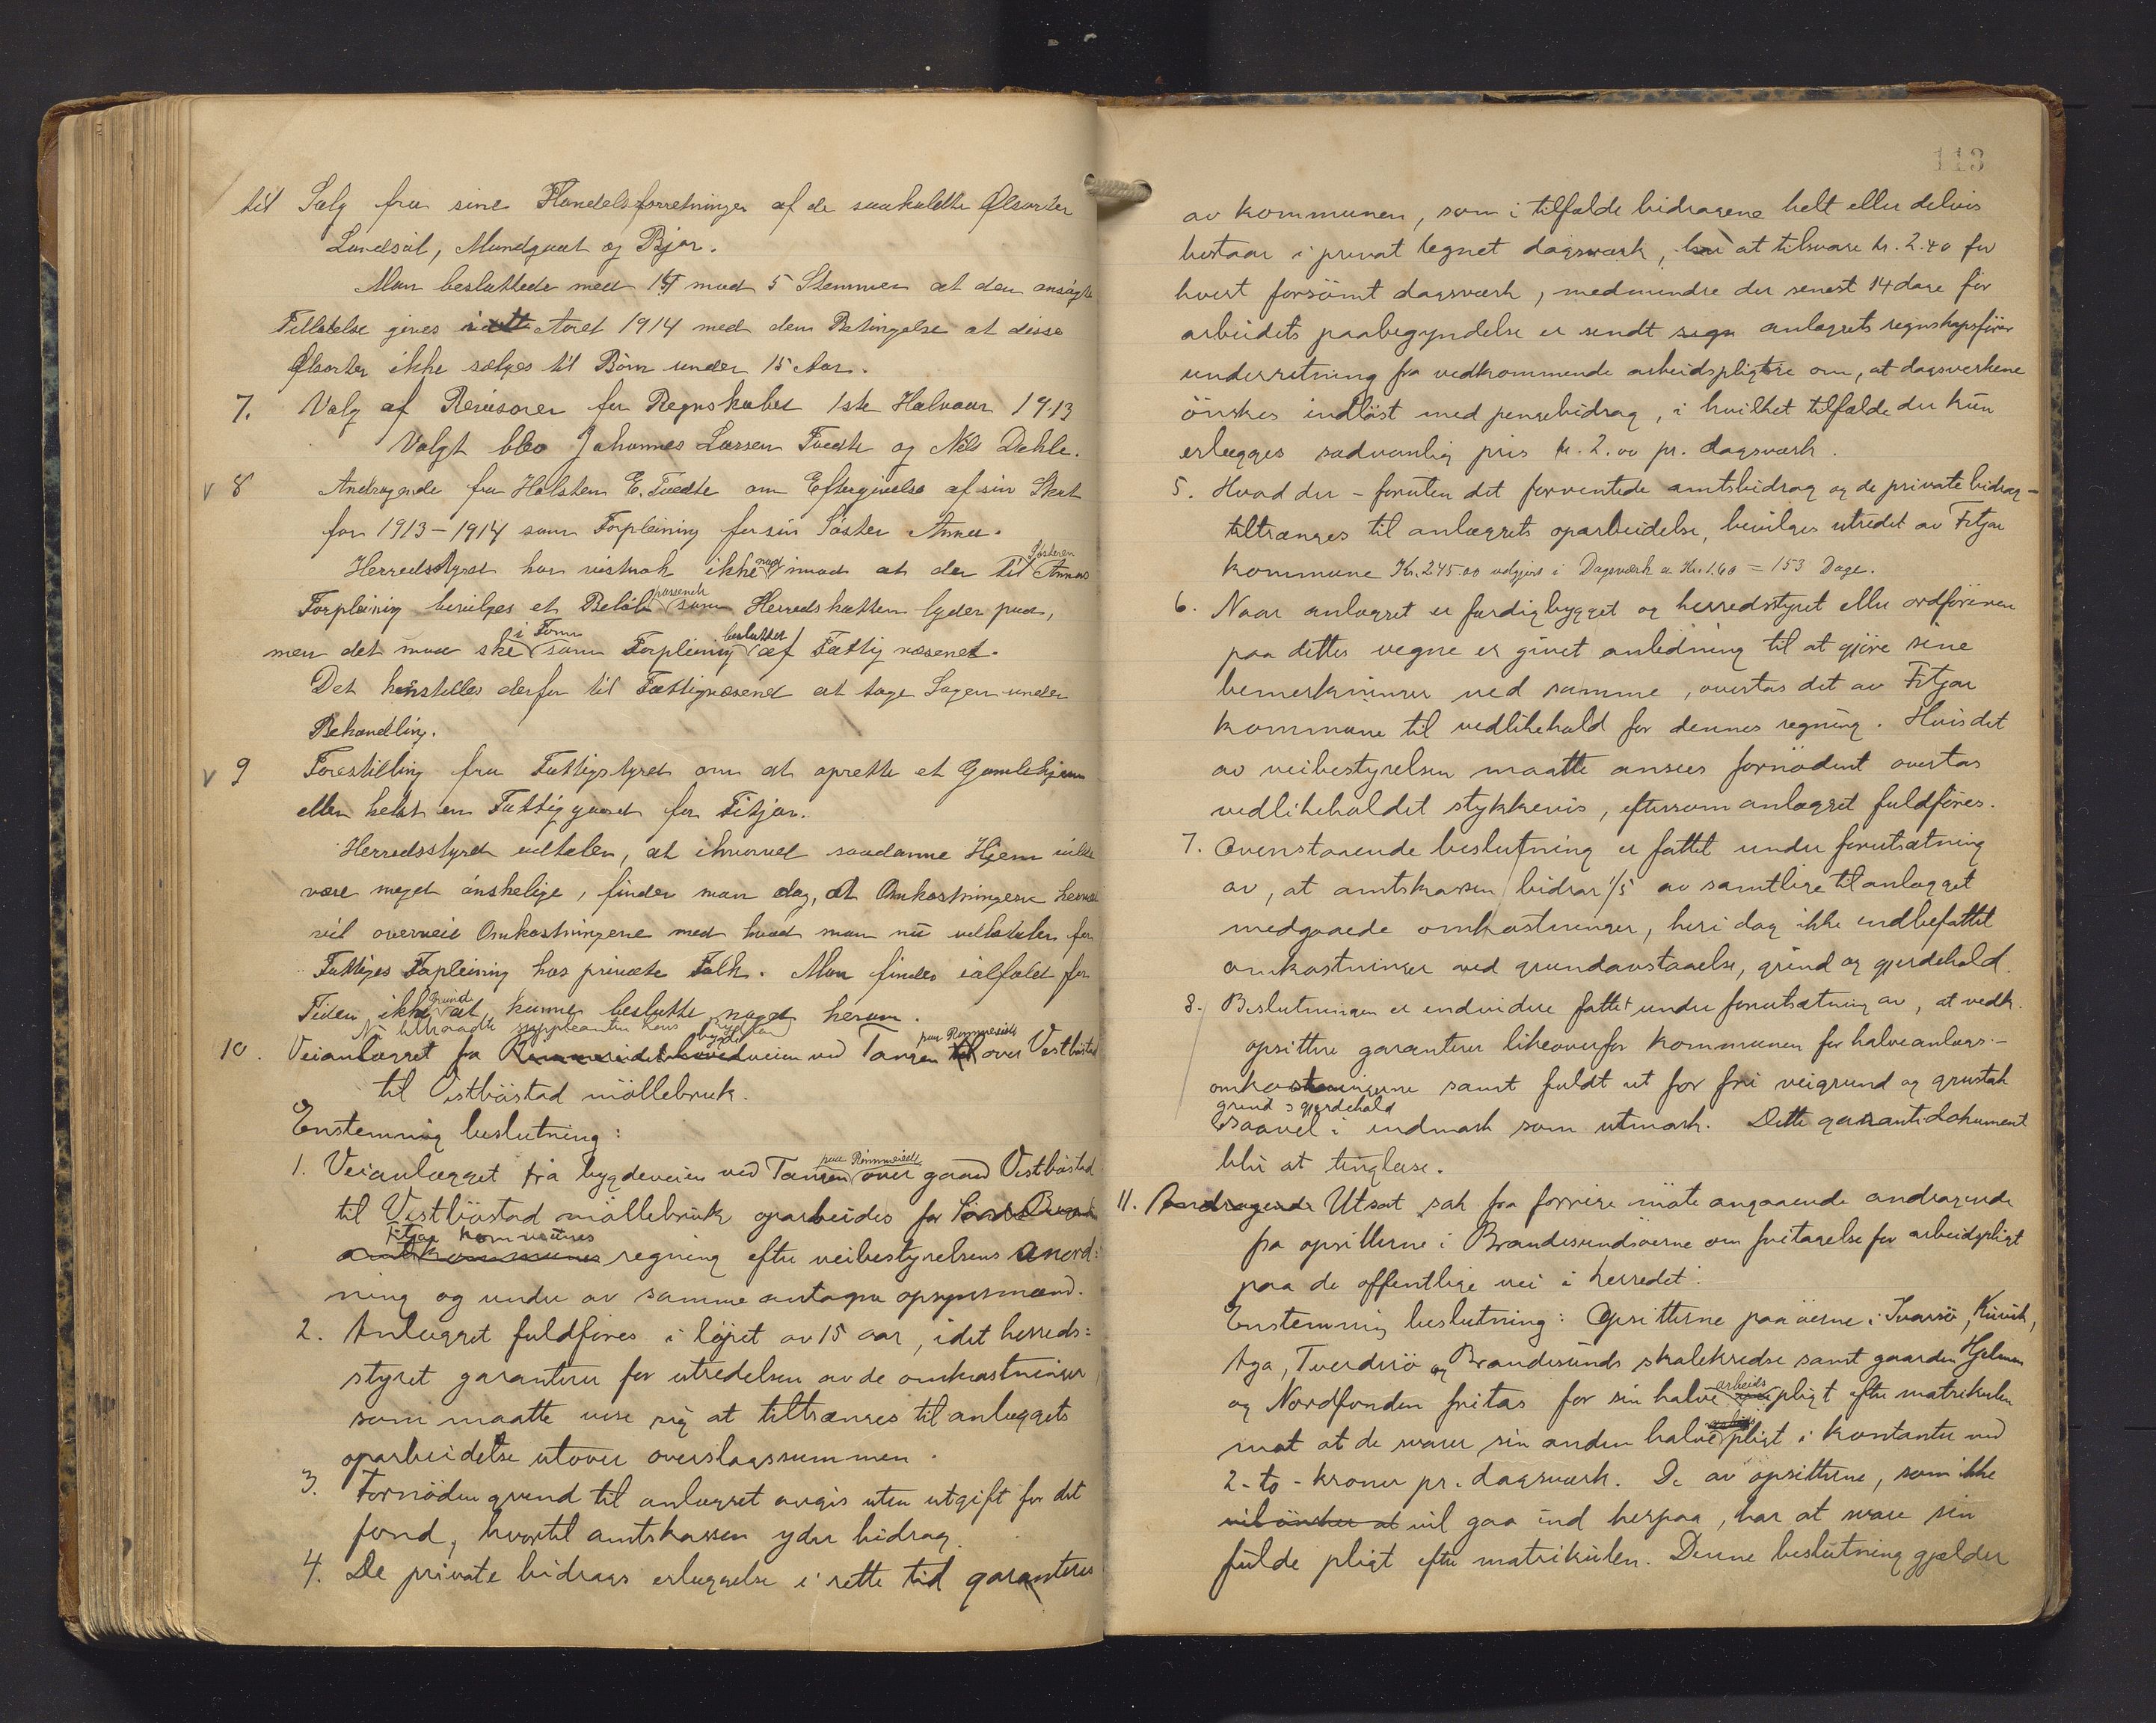 til Salg fra sine Handelsforretninger af de saakaldte Ølsorter
Landsøl, Mundgaat og Bjor.
Man besluttede med 14 mod 5 Stemmer at den ansøgte
Tilladelse gives i Aaret 1914 med den Betingelse at disse
Ølsorter ikke sælges til Børn under 15 Aar.
7. Valg af Revisorer for Regnskabet 1ste Halvaar 1913
Valgt blev Johannes Larssen Tvedte og Nils Dahle.
v 8 Andragende fra Halsten E. Tvedte om Eftergivelse af sin Skat
for 1913-1914 som Forpleining for sin Søster Anna.
Herredsstyret har vistnok ikke noget imod at der til Søsteren Annas
Forpleining bevilges et Beløb passende som Herredskatten lyder paa,
men det maa ske i Form som Forpleining besluttet af Fattigvæsenet.
Det henstilles derfor til Fattigvæsenet at tage Sagen under
Behandling.
v 9 Forestilling fra Fattigstyret om at oprette et Gamlehjem
eller helst en Fattiggaard for Fitjar.
Herredsstyret udtaler, at ihvorvel saadanne Hjem vilde
være meget ønskelige, finder man dog, at Omkostningerne herved
vil overveie Omkostningerne med hvad man nu udbetaler for
Fattiges Forpleining hos private Folk. Man finder ialfald for
Tiden ikke Grund at kunne beslutte noget herom.
Nu tiltraadte suppleanten Hans Rydland
10. Veianlægget fra bygdeveien ved Tangen paa Rimmereide over Vestbøstad
til Vestbøstad møllebruk.
Enstemmig beslutning:
1. Veianlægget fra bygdeveien ved Tangen paa Rimmereide over gaard Vestbøstad
til Vestbøstad møllebruk oparbeides for Søndre Bergenhus
Fitjar kommunes
amtkommunes regning efter veibestyrelsens anord=
ning og under av samme antagne opsynsmænd.
2. Anlægget fuldføres i løpet av 15 aar, idet herreds=
styret garanterer for utredelsen av de omkostninger
som maatte vise sig at tiltrænges til anlæggets
oparbeidelse utover overslagssummen.
3. Fornøden grund til anlægget avgis uten utgift for det
fond, hvortil amtskassen yder bidrag.
4. De private bidrags erlæggelse i rette tid garanteres
113
av kommunen, som i tilfælde bidragene helt eller delvis
bestaar i privat tegnet dagsværk, har at tilsvare kr. 2.40 for
hvert forsømt dagsværk, medmindre der senest 14 dage før
arbeidets paabegyndelse er sendt anlæggets regnskapsfører
underretning fra vedkommende arbeidspligtige om, at dagsverkene
ønskes indløst med pengebidrag, i hvilket tilfælde der kun
erlægges sædvanlig pris kr. 2.00 pr. dagsværk.
5. Hvad der - foruten det forventede amtsbidrag og de private bidrag -
tiltrænges til anlæggets oparbeidelse, bevilges utredet av Fitjar
kommune Kr. 245.00 udgjort i Dagsværk a Kr. 1.60 = 153 Dage.
6. Naar anlægget er færdigbygget og herredsstyret eller ordføreren
paa dettes vegne er givet anledning til at gjøre sine
bemerkninger ved samme, overtas det av Fitjar
kommune til vedlikehold for dennes regning. Hvis det
av veibestyrelsen maatte ansees fornødent overtas
vedlikeholdet stykkevis, eftersom anlægget fuldføres.
7. Ovenstaaende beslutning er fattet under forutsætning
av, at amtskassen bidrar 1/5 av samtlige til anlægget
medgaaede omkostninger, heri dog ikke indbefattet
omkostninger ved grundavstaaelse, grind og gjerdehold.
8. Beslutningen er endvidere fattet under forutsætning av, at vedk.
opsittere garanterer likeoverfor kommunen for halve anlægs-
omkostningerne samt fuldt ut for fri veigrund og grustak
grind & gjerdehold
saavel i indmark som utmark. Dette garantidokument
blir at tinglæse.
11. Andragende Utsat sak fra forrige møte angaaende andragende
fra opsitterne i Brandesundsøerne om fritagelse for arbeidspligt
paa de offentlige vei i herredet.
Enstemmig beslutning: Opsitterne paa øerne i Ivarsø, Kuvik,
Aga, Tverderø og Brandesunds skolekredse samt gaarden Hjelmen
og Nordfonden fritas for sin halve arbeidspligt efter matrikulen
mot at de svarer sin anden halve pligt i kontanter med
2-to-kroner pr. dagsværk. De av opsitterne, som ikke
vil ønsker at vil gaa ind herpaa, har at svare sin
fulde pligt efter matrikulen. Denne beslutning gjælder